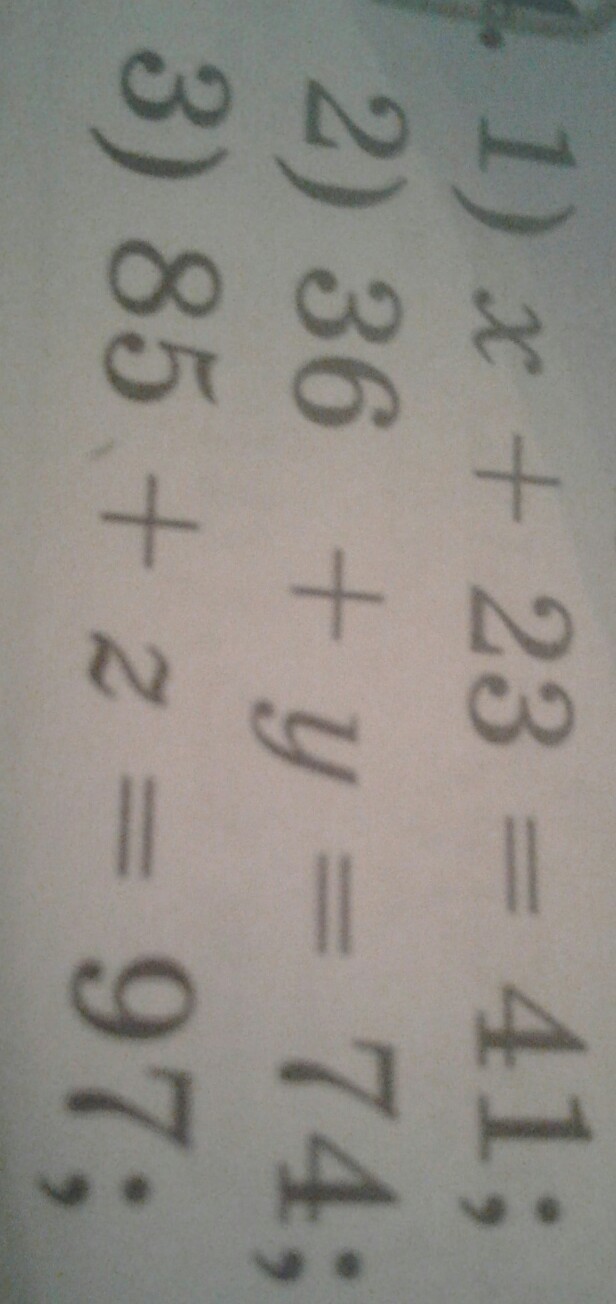 1) x + 23 = 41;
2) 36 + y = 74;
3) 85 + z = 97;